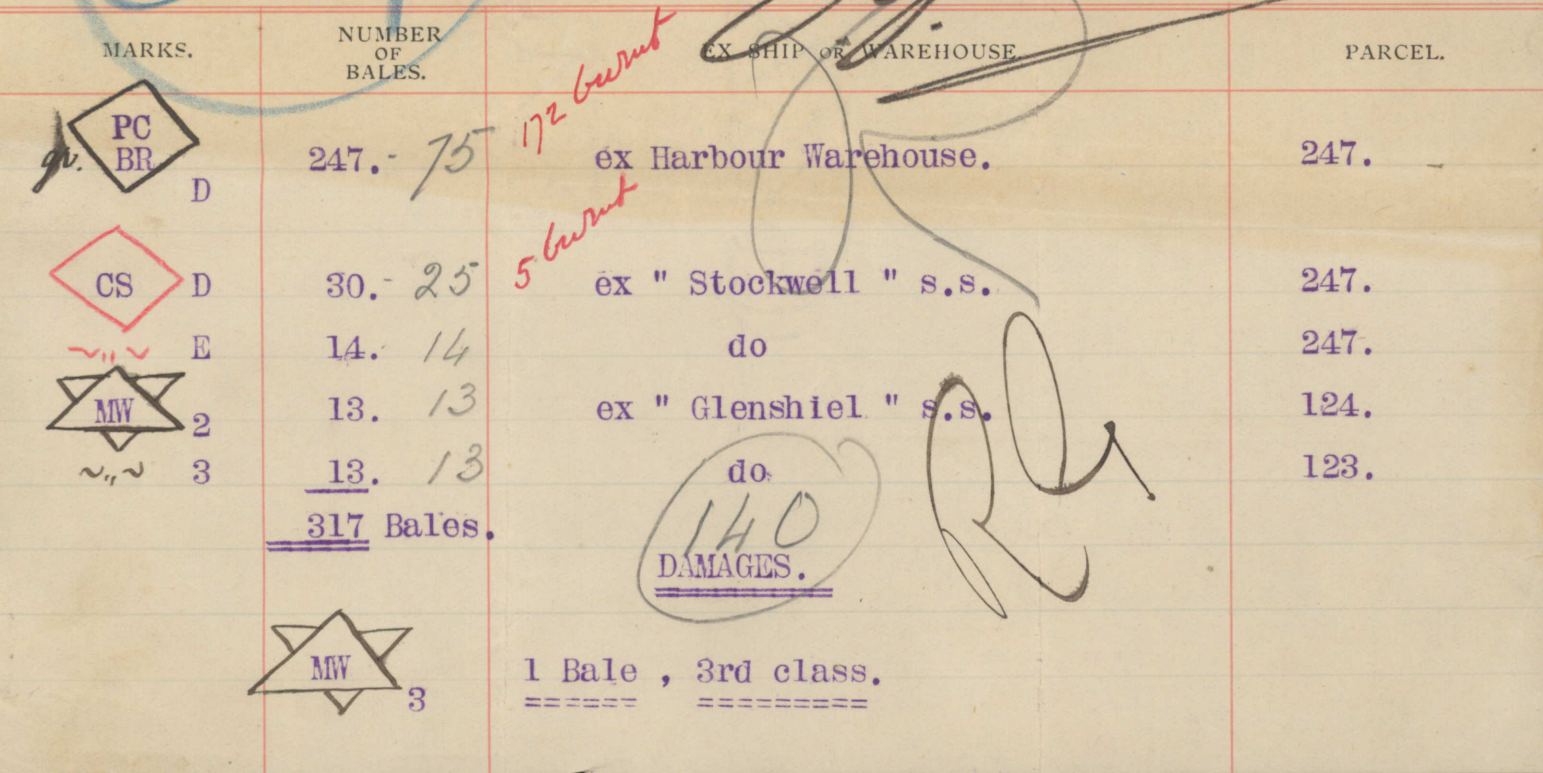 MARKS. NUMBER OF BALES. EX SHIP OR WAREHOUSE PARCEL.
172 burnt
PC
BR D 247.- 75 ex Harbour Warehouse. 247. -
5 burnt
CS D 30.- 25 ex " Stockwell " s.s. 247.
~,,~ E 14. 14 do 247.
MW 2 13. 13 ex " Glenshiel " s.s. 124.
~,,~ 3 13. 13 do 123.
317 Bales.
140
DAMAGES.
MW 3 1 Bale , 3rd class.